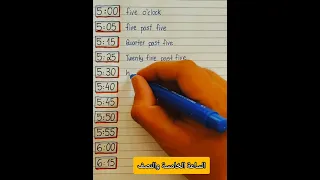 5:00 five o'clock
5:05 five past five
5:15 Quarter past five
5:25 Twenty five past five
5:30 h
5:40
5:45
5:50
5:55
6:00
6:15
الساعة الخامسة والنصف